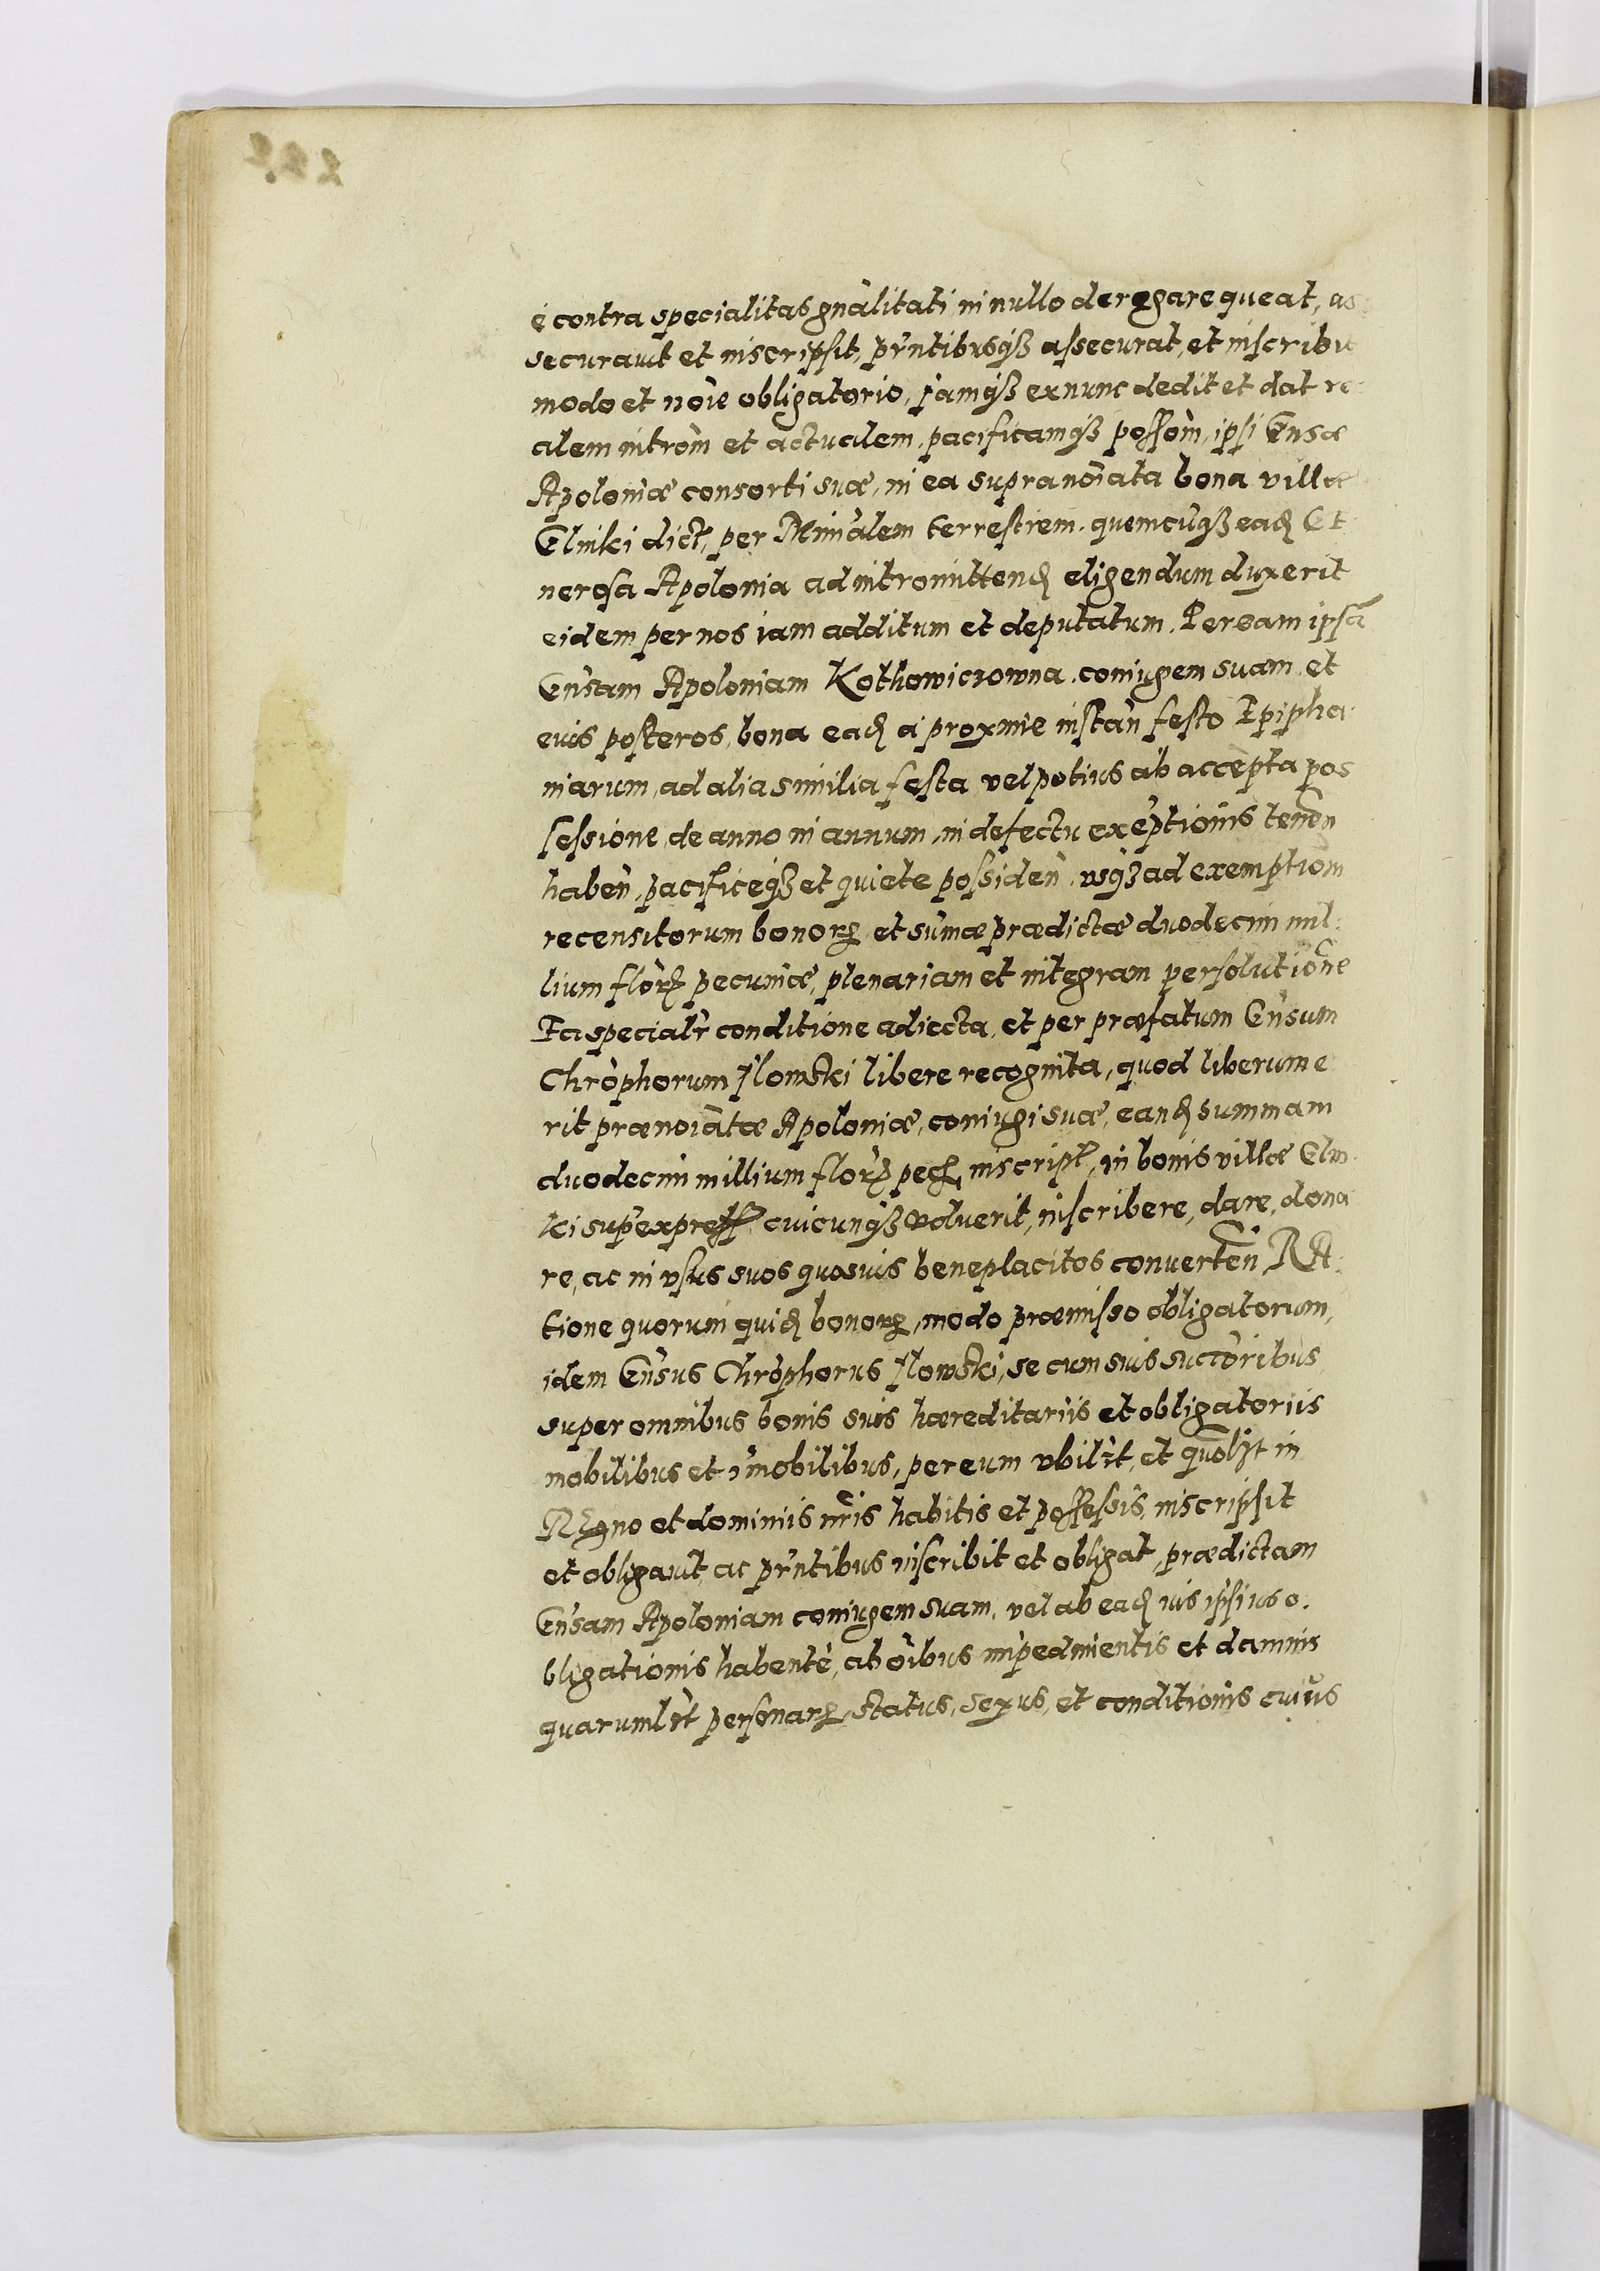 e contra specialitas gnalitati in nullo derogare queat, as-
securavit et inscripsit, pntibusqȝ assecurat, et inscribit
modo et noie obligatorio, jamqȝ exnunc dedit et dat re-
alem introm et actualem, pacificamqȝ possom, ipsi Gnsæ
Apoloniæ consorti suæ, in ea supranoiata bona villæ
Glinki dict, per Minralem terrestrem quemcuqȝ ead Ge
nerosa Apolonia ad intromittend eligendum duxerit
eidem per nos iam additum et deputatum. Per eam ipsa
Gnsam Apoloniam Kothowiczowna coniugem suam et
euis posteros, bona ead à proxime instan festo Epipha-
niarum, ad alia similia festa vel potius ab accepta pos
sessione, de anno in annum, in defectu exeptionis tenen
haben, pacificeqȝ et quiete possiden, usqȝ ad exemptiom
recensitorum bonorꝝ et sumæ prædictæ duodecim mil-
lium florꝝ pecuniæ, plenariam et integram persolutione
Ea specialr conditione adiecta, et per præfatum Gnsum
Chrophorum Jlowski libere recognita, quod liberum e
rit prænoiatæ Apoloniæ, coniugi suæ, eand summam
duodecim millium florꝝ pec, inscript, in bonis villæ Glin-
ki sup express cuicunqȝ voluerit, inscribere, dare, dona
re, ac in usus suos quosvis beneplacitos converten. RA-
tione quorum quid bonorꝝ, modo præmisso obligatorum,
idem Gnsus Chrophorus Jlowski, se cum suis succoribus
super omnibus bonis suis hæreditariis et obligatoriis
mobilibus et imobilibus, per eum ubilt, et quolt in
Regno et dominiis nris habitis et possessis, inscripsit
et obligavit, ac pntibus inscribit et obligat, prædictam
Gnsam Apoloniam coniugem suam, vel ab ead ius ipsius o-
bligationis habente, ab oibus impedimentis et damnis
quarumlt personarꝝ, status, sexus, et conditionis cuius